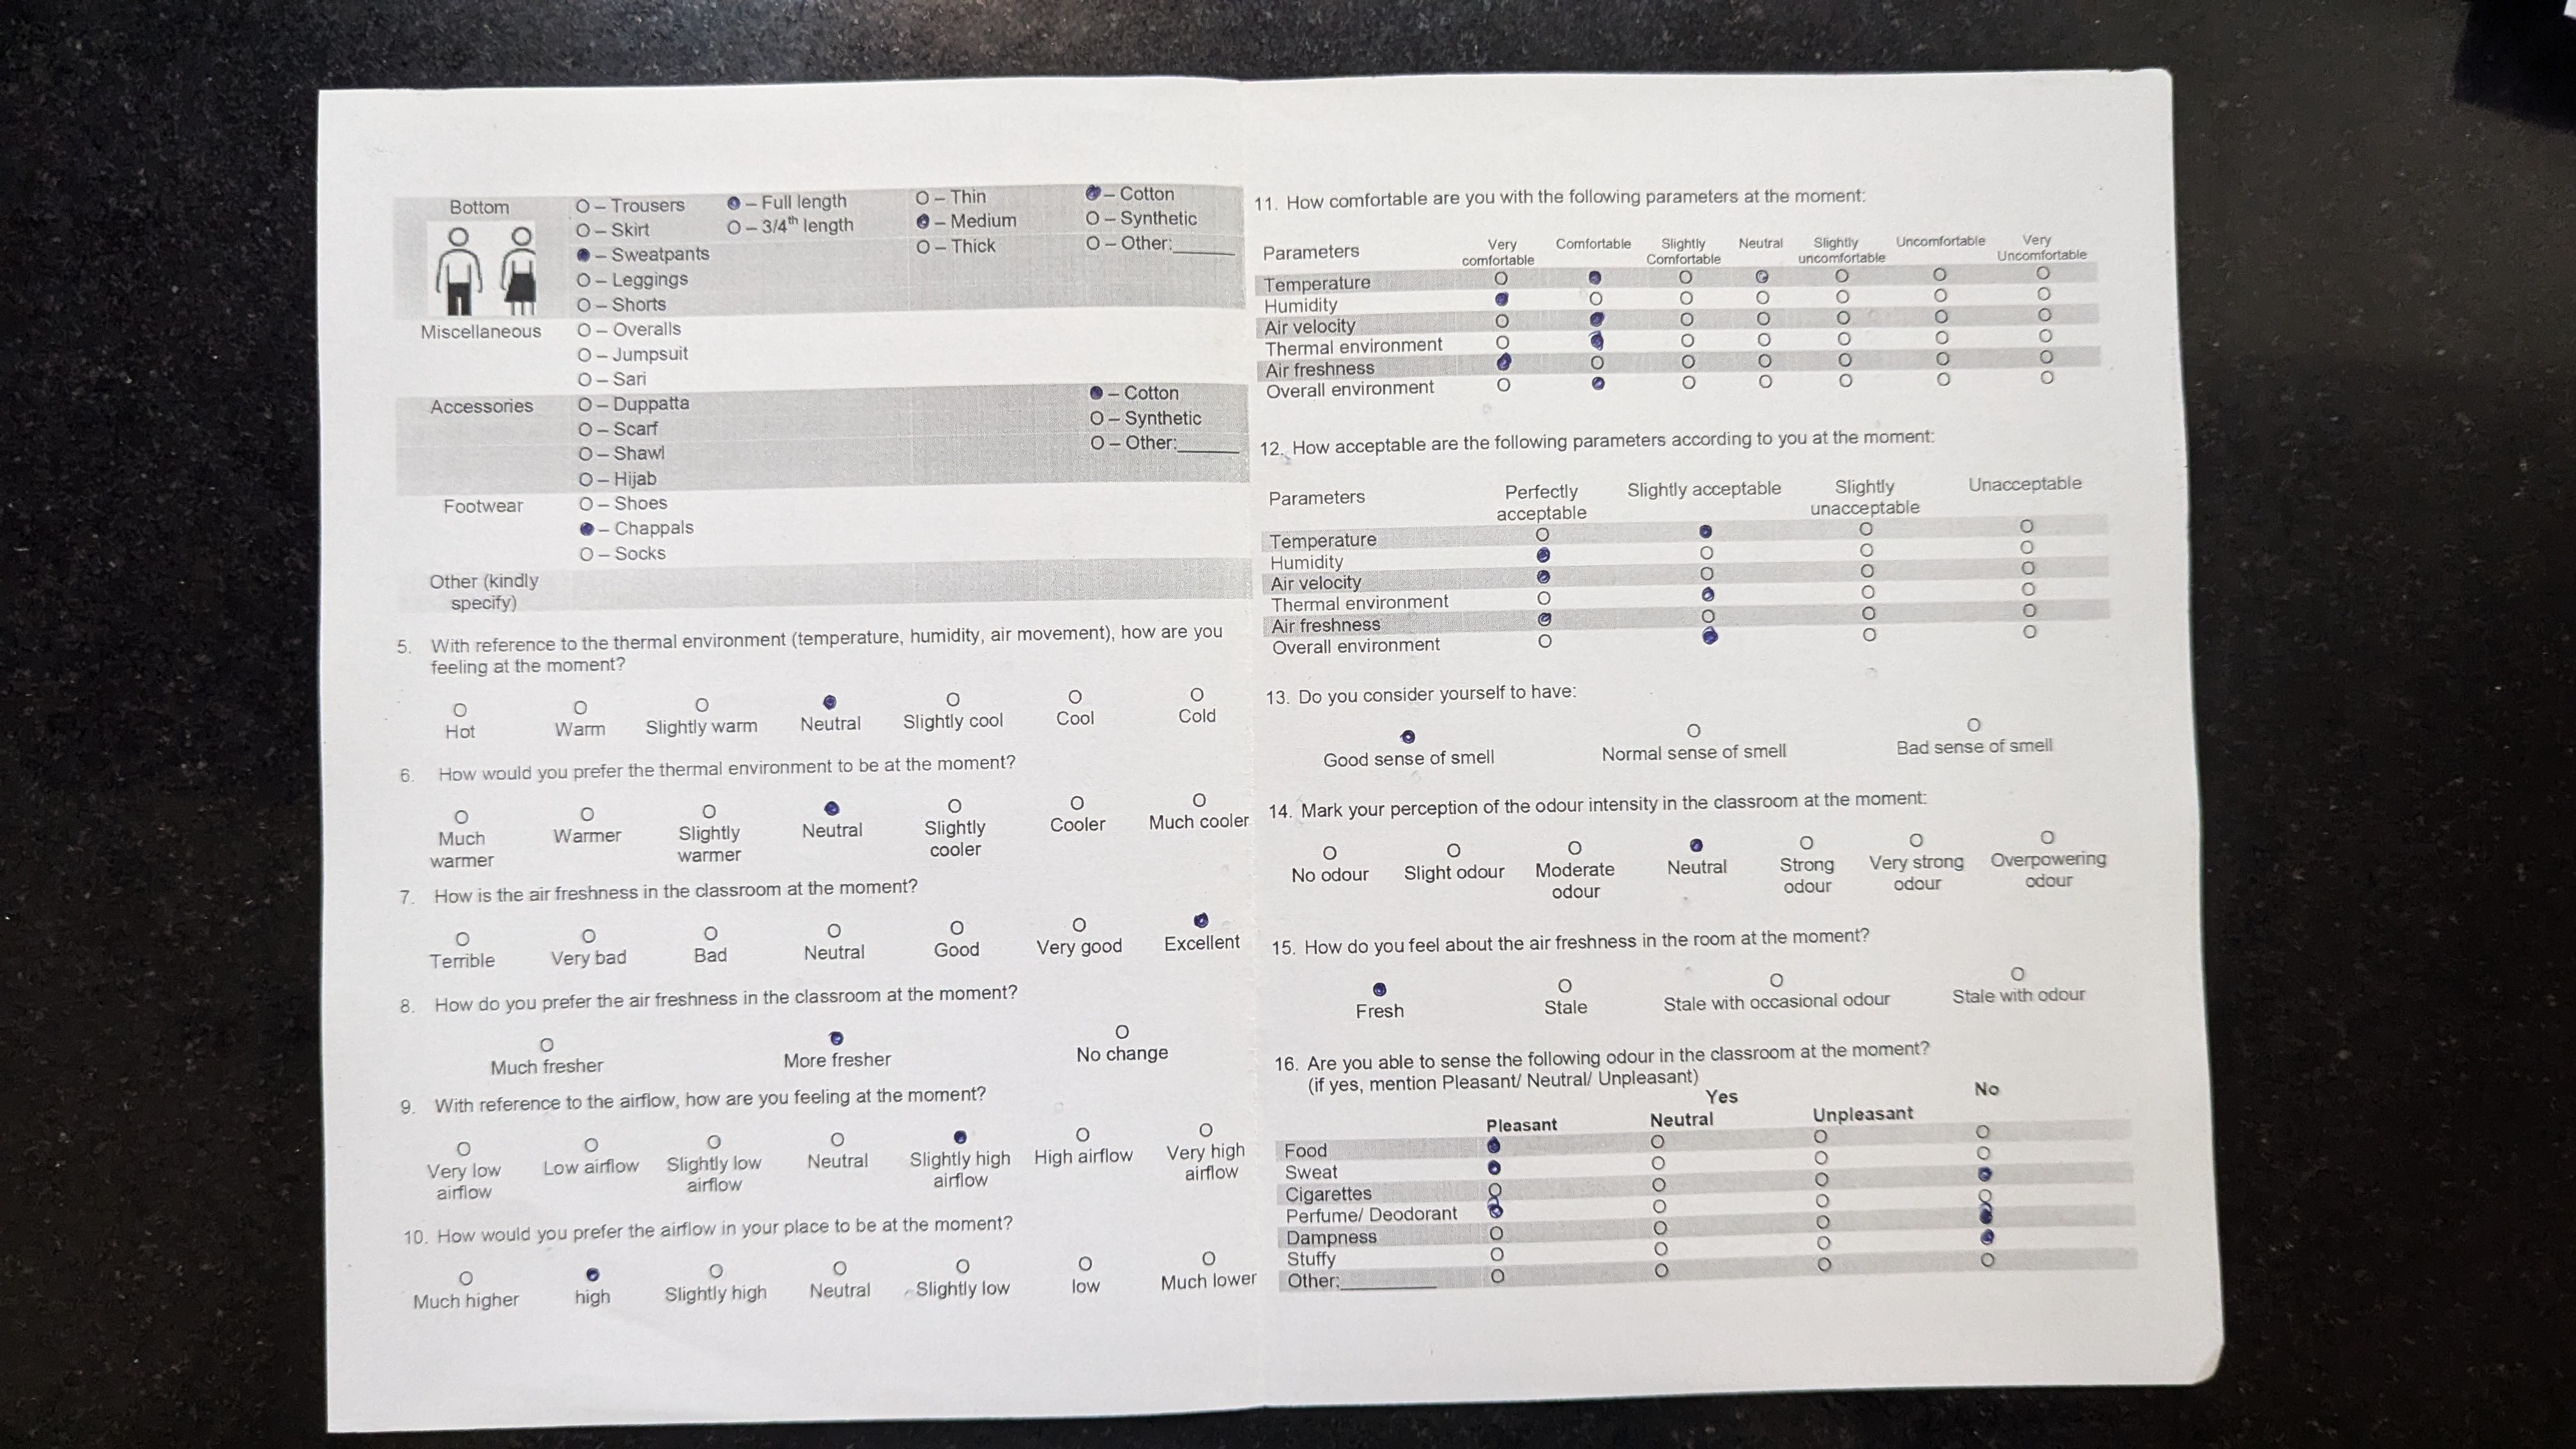 Bottom
O – Trousers
O – Skirt
– Sweatpants
O – Leggings
O – Shorts
– Full length
O – 3/4th length
O – Thin
– Medium
O – Thick
– Cotton
O – Synthetic
O – Other:______
Miscellaneous
O – Overalls
O – Jumpsuit
O – Sari
Accessories
O – Duppatta
O – Scarf
O – Shawl
O – Hijab
– Cotton
O – Synthetic
O – Other:______
Footwear
O – Shoes
– Chappals
O – Socks
Other (kindly
specify)
5. With reference to the thermal environment (temperature, humidity, air movement), how are you
feeling at the moment?
Hot Warm Slightly warm Neutral Slightly cool Cool Cold
6. How would you prefer the thermal environment to be at the moment?
Much warmer Warmer Slightly warmer Neutral Slightly cooler Cooler Much cooler
7. How is the air freshness in the classroom at the moment?
Terrible Very bad Bad Neutral Good Very good Excellent
8. How do you prefer the air freshness in the classroom at the moment?
Much fresher More fresher No change
9. With reference to the airflow, how are you feeling at the moment?
Very low airflow Low airflow Slightly low airflow Neutral Slightly high airflow High airflow Very high airflow
10. How would you prefer the airflow in your place to be at the moment?
Much higher high Slightly high Neutral Slightly low low Much lower
11. How comfortable are you with the following parameters at the moment:
Parameters Very comfortable Comfortable Slightly Comfortable Neutral Slightly uncomfortable Uncomfortable Very Uncomfortable
Temperature
Humidity
Air velocity
Thermal environment
Air freshness
Overall environment
12. How acceptable are the following parameters according to you at the moment:
Parameters Perfectly acceptable Slightly acceptable Slightly unacceptable Unacceptable
Temperature
Humidity
Air velocity
Thermal environment
Air freshness
Overall environment
13. Do you consider yourself to have:
Good sense of smell Normal sense of smell Bad sense of smell
14. Mark your perception of the odour intensity in the classroom at the moment:
No odour Slight odour Moderate odour Neutral Strong odour Very strong odour Overpowering odour
15. How do you feel about the air freshness in the room at the moment?
Fresh Stale Stale with occasional odour Stale with odour
16. Are you able to sense the following odour in the classroom at the moment?
(if yes, mention Pleasant/ Neutral/ Unpleasant)
Yes No
Pleasant Neutral Unpleasant
Food
Sweat
Cigarettes
Perfume/ Deodorant
Dampness
Stuffy
Other:__________